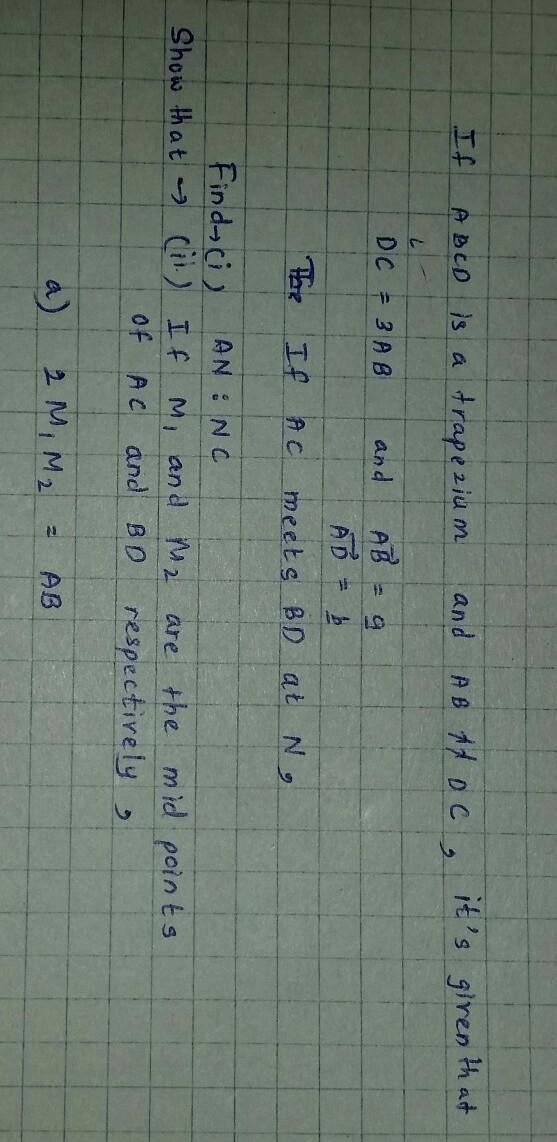 If ABCD is a trapezium and AB // DC, it's given that
DC = 3AB and AB = a
AD = b
If AC meets BD at N,
Find → (i) AN : NC
Show that → (ii) If M₁ and M₂ are the mid points
of AC and BD respectively,
a) 2 M₁M₂ = AB